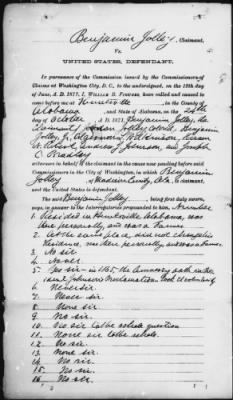 Benjamin Jolley, Claimant,
Vs.
UNITED STATES, DEFENDANT.
In pursuance of the Commission issued by the Commissioners of
Claims at Washington City, D. C., to the undersigned, on the 19th day
of June, A. D. 1871, I, WILLIAM B. have called and caused to
come before me at Huntsville, in the County of
and State of Alabama, on the
day of October, A. D. 1871, Benjamin Jolley, the
Claimant, Benjamin
Jolley Jr,
W. Johnson, and Joseph
C. Bradley
on behalf of the claimant in the cause now pending before said
Commissioners in the City of Washington, in which Benjamin
Jolley of Madison County, Ala., is claimant,
and the United States is defendant.
The said Benjamin Jolley, being first duly sworn,
says, in answer to the Interrogatories propounded to him,
1. Resided in Huntsville Alabama, was
there personally, and was a
2. At the same place, and did not change his
residence,
3. No sir
4. Never
5. Yes sir - in 1865 the Amnesty oath under
Johnson's Proclamation, took it voluntarily
6. Never sir.
7. None sir.
8. None sir
9. No sir.
10. No sir to the whole question
11. None sir to the whole.
12. No sir
13. None sir.
14. No sir.
15. No sir.
16. No sir.